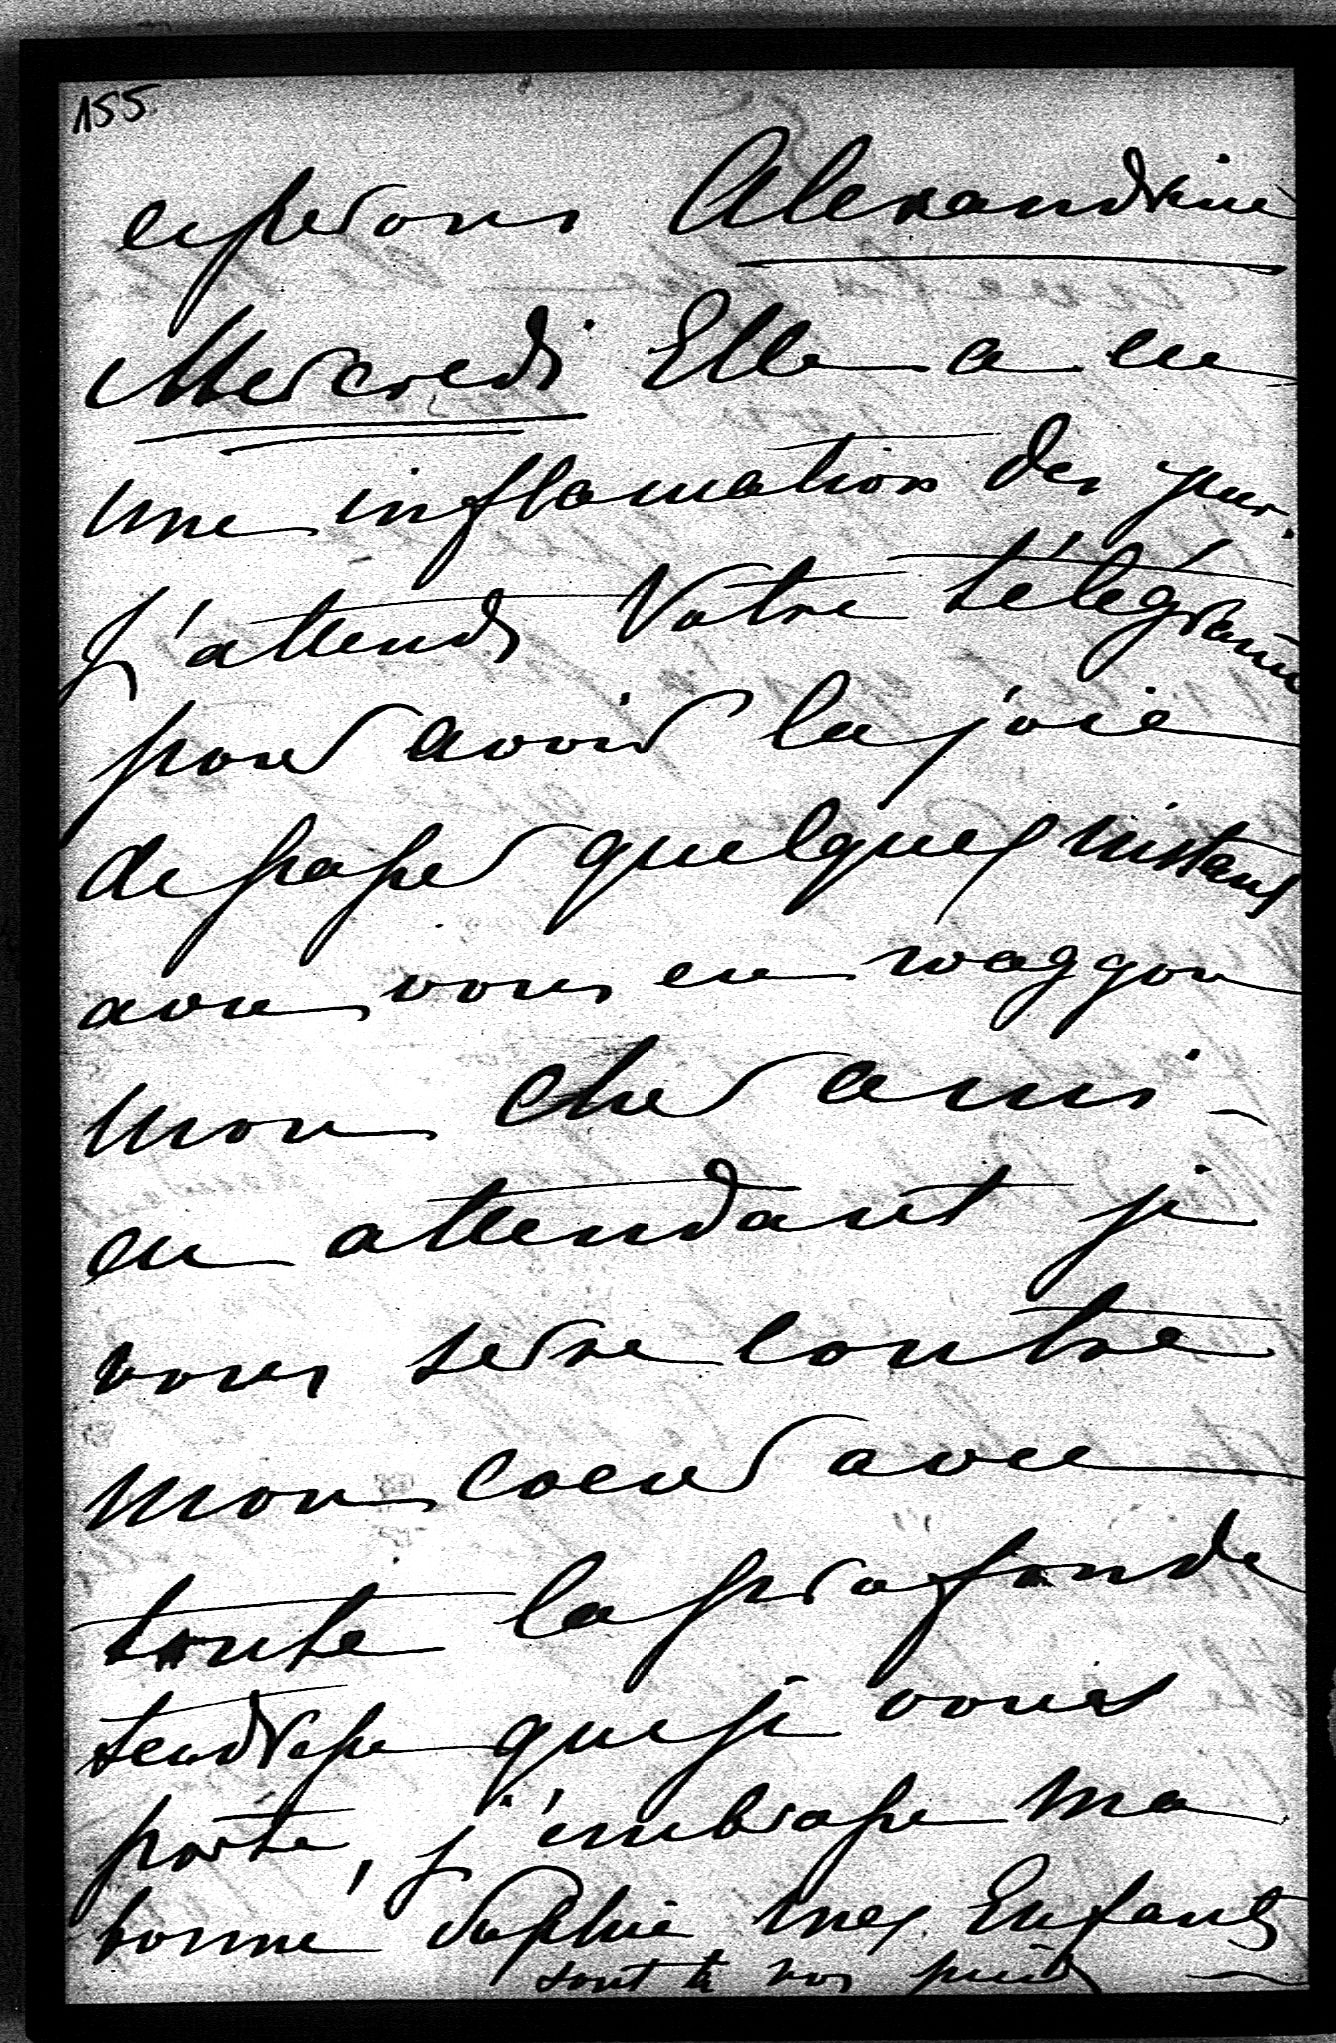 155.
esperons Alexandrine
Mercredi Elle a eu
une inflamation des yeux.
J'attends Votre télégramme
pour avoir la joie
de passer quelques instans
avec vous en waggon
mon cher ami –
en attendant je
vous serre contre
mon coeur avec
toute la profonde
tendresse que je vous
porte, j'embrasse ma
bonne Sophie mes Enfants
sont à vos pieds –